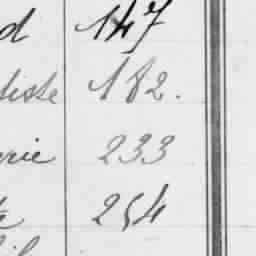 d 147
diste 182.
erie 233
254